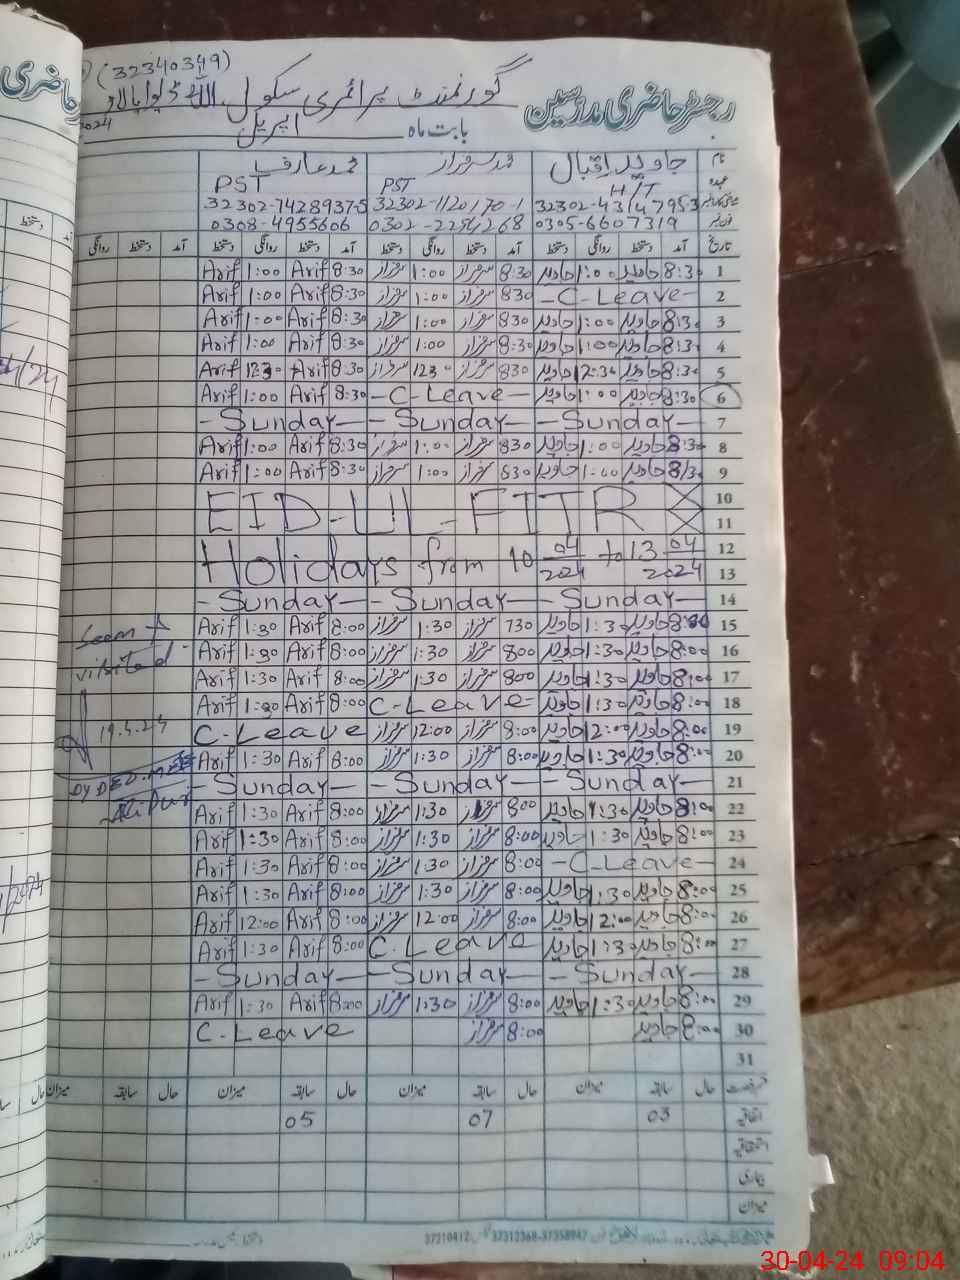 (32340349)
گورنمنٹ پرائمری سکول
رجسٹر حاضری مدرسین
2024
بابت ماہ اپریل
نام جاوید اقبال محمد سرفراز محمد عارف
عہدہ H/T PST PST
32302-1120170-1 32302-7428937-5
فون نمبر 0305-6607319 0302-2254268 0308-4955606
تاریخ آمد دستخط روانگی دستخط آمد دستخط روانگی دستخط آمد دستخط روانگی دستخط آمد دستخط روانگی
1 8:30 جاوید 1:00 جاوید 8:30 سرفراز 1:00 سرفراز 8:30 Arif 1:00 Arif
2 -C-Leave- 830 سرفراز 1:00 سرفراز 8:30 Arif 1:00 Arif
3 8:30 جاوید 1:00 جاوید 830 سرفراز 1:00 سرفراز 8:30 Arif 1:00 Arif
4 8:30 جاوید 1:00 جاوید 8:30 سرفراز 1:00 سرفراز 8:30 Arif 1:00 Arif
5 8:30 جاوید 12:30 جاوید 830 سرفراز 1230 سرفراز 8:30 Arif 1230 Arif
6 8:30 جاوید 1:00 جاوید -C-Leave- 8:30 Arif 1:00 Arif
7 -Sunday- -Sunday- -Sunday-
8 8:30 جاوید 1:00 جاوید 830 سرفراز 1:00 سرفراز 8:30 Arif 1:00 Arif
9 8:30 جاوید 1:00 جاوید 830 سرفراز 1:00 سرفراز 8:30 Arif 1:00 Arif
10
EID-UL-FITR
11
12
Holidays from 10 04/2024 to 13 04/2024
13
14 -Sunday- -Sunday- -Sunday-
15 جاوید 1:30 جاوید 730 سرفراز 1:30 سرفراز 8:00 Arif 1:30 Arif
16 8:00 جاوید 1:30 جاوید 800 سرفراز 1:30 سرفراز 8:00 Arif 1:30 Arif
17 8:00 جاوید 1:30 جاوید 800 سرفراز 1:30 سرفراز 8:00 Arif 1:30 Arif
18 8:00 جاوید 1:30 جاوید C-Leave- 8:00 Arif 1:30 Arif
19 8:00 جاوید 12:00 جاوید 8:00 سرفراز 12:00 سرفراز C-Leave
20 8:00 جاوید 1:30 جاوید 8:00 سرفراز 1:30 سرفراز 8:00 Arif 1:30 Arif
21 -Sunday- -Sunday- -Sunday-
22 8:00 جاوید 1:30 جاوید 800 سرفراز 1:30 سرفراز 8:00 Arif 1:30 Arif
23 8:00 جاوید 1:30 جاوید 8:00 سرفراز 1:30 سرفراز 8:00 Arif 1:30 Arif
24 -C-Leave- 8:00 سرفراز 1:30 سرفراز 8:00 Arif 1:30 Arif
25 8:00 جاوید 1:30 جاوید 8:00 سرفراز 1:30 سرفراز 8:00 Arif 1:30 Arif
26 8:00 جاوید 12:00 جاوید 8:00 سرفراز 12:00 سرفراز 8:00 Arif 12:00 Arif
27 8:00 جاوید 1:30 جاوید C.Leave 8:00 Arif 1:30 Arif
28 -Sunday- -Sunday- -Sunday-
29 8:00 جاوید 1:30 جاوید 8:00 سرفراز 1:30 سرفراز 8:00 Arif 1:30 Arif
30 8:00 جاوید 8:00 سرفراز C-Leave
31
Seen &
visited
19.4.24
DY DEO
Ali Pur
رخصت حال سابقہ میزان حال سابقہ میزان حال سابقہ میزان حال سابقہ میزان
اتفاقیہ 03 07 05
بیماری
میزان
30-04-24 09:04